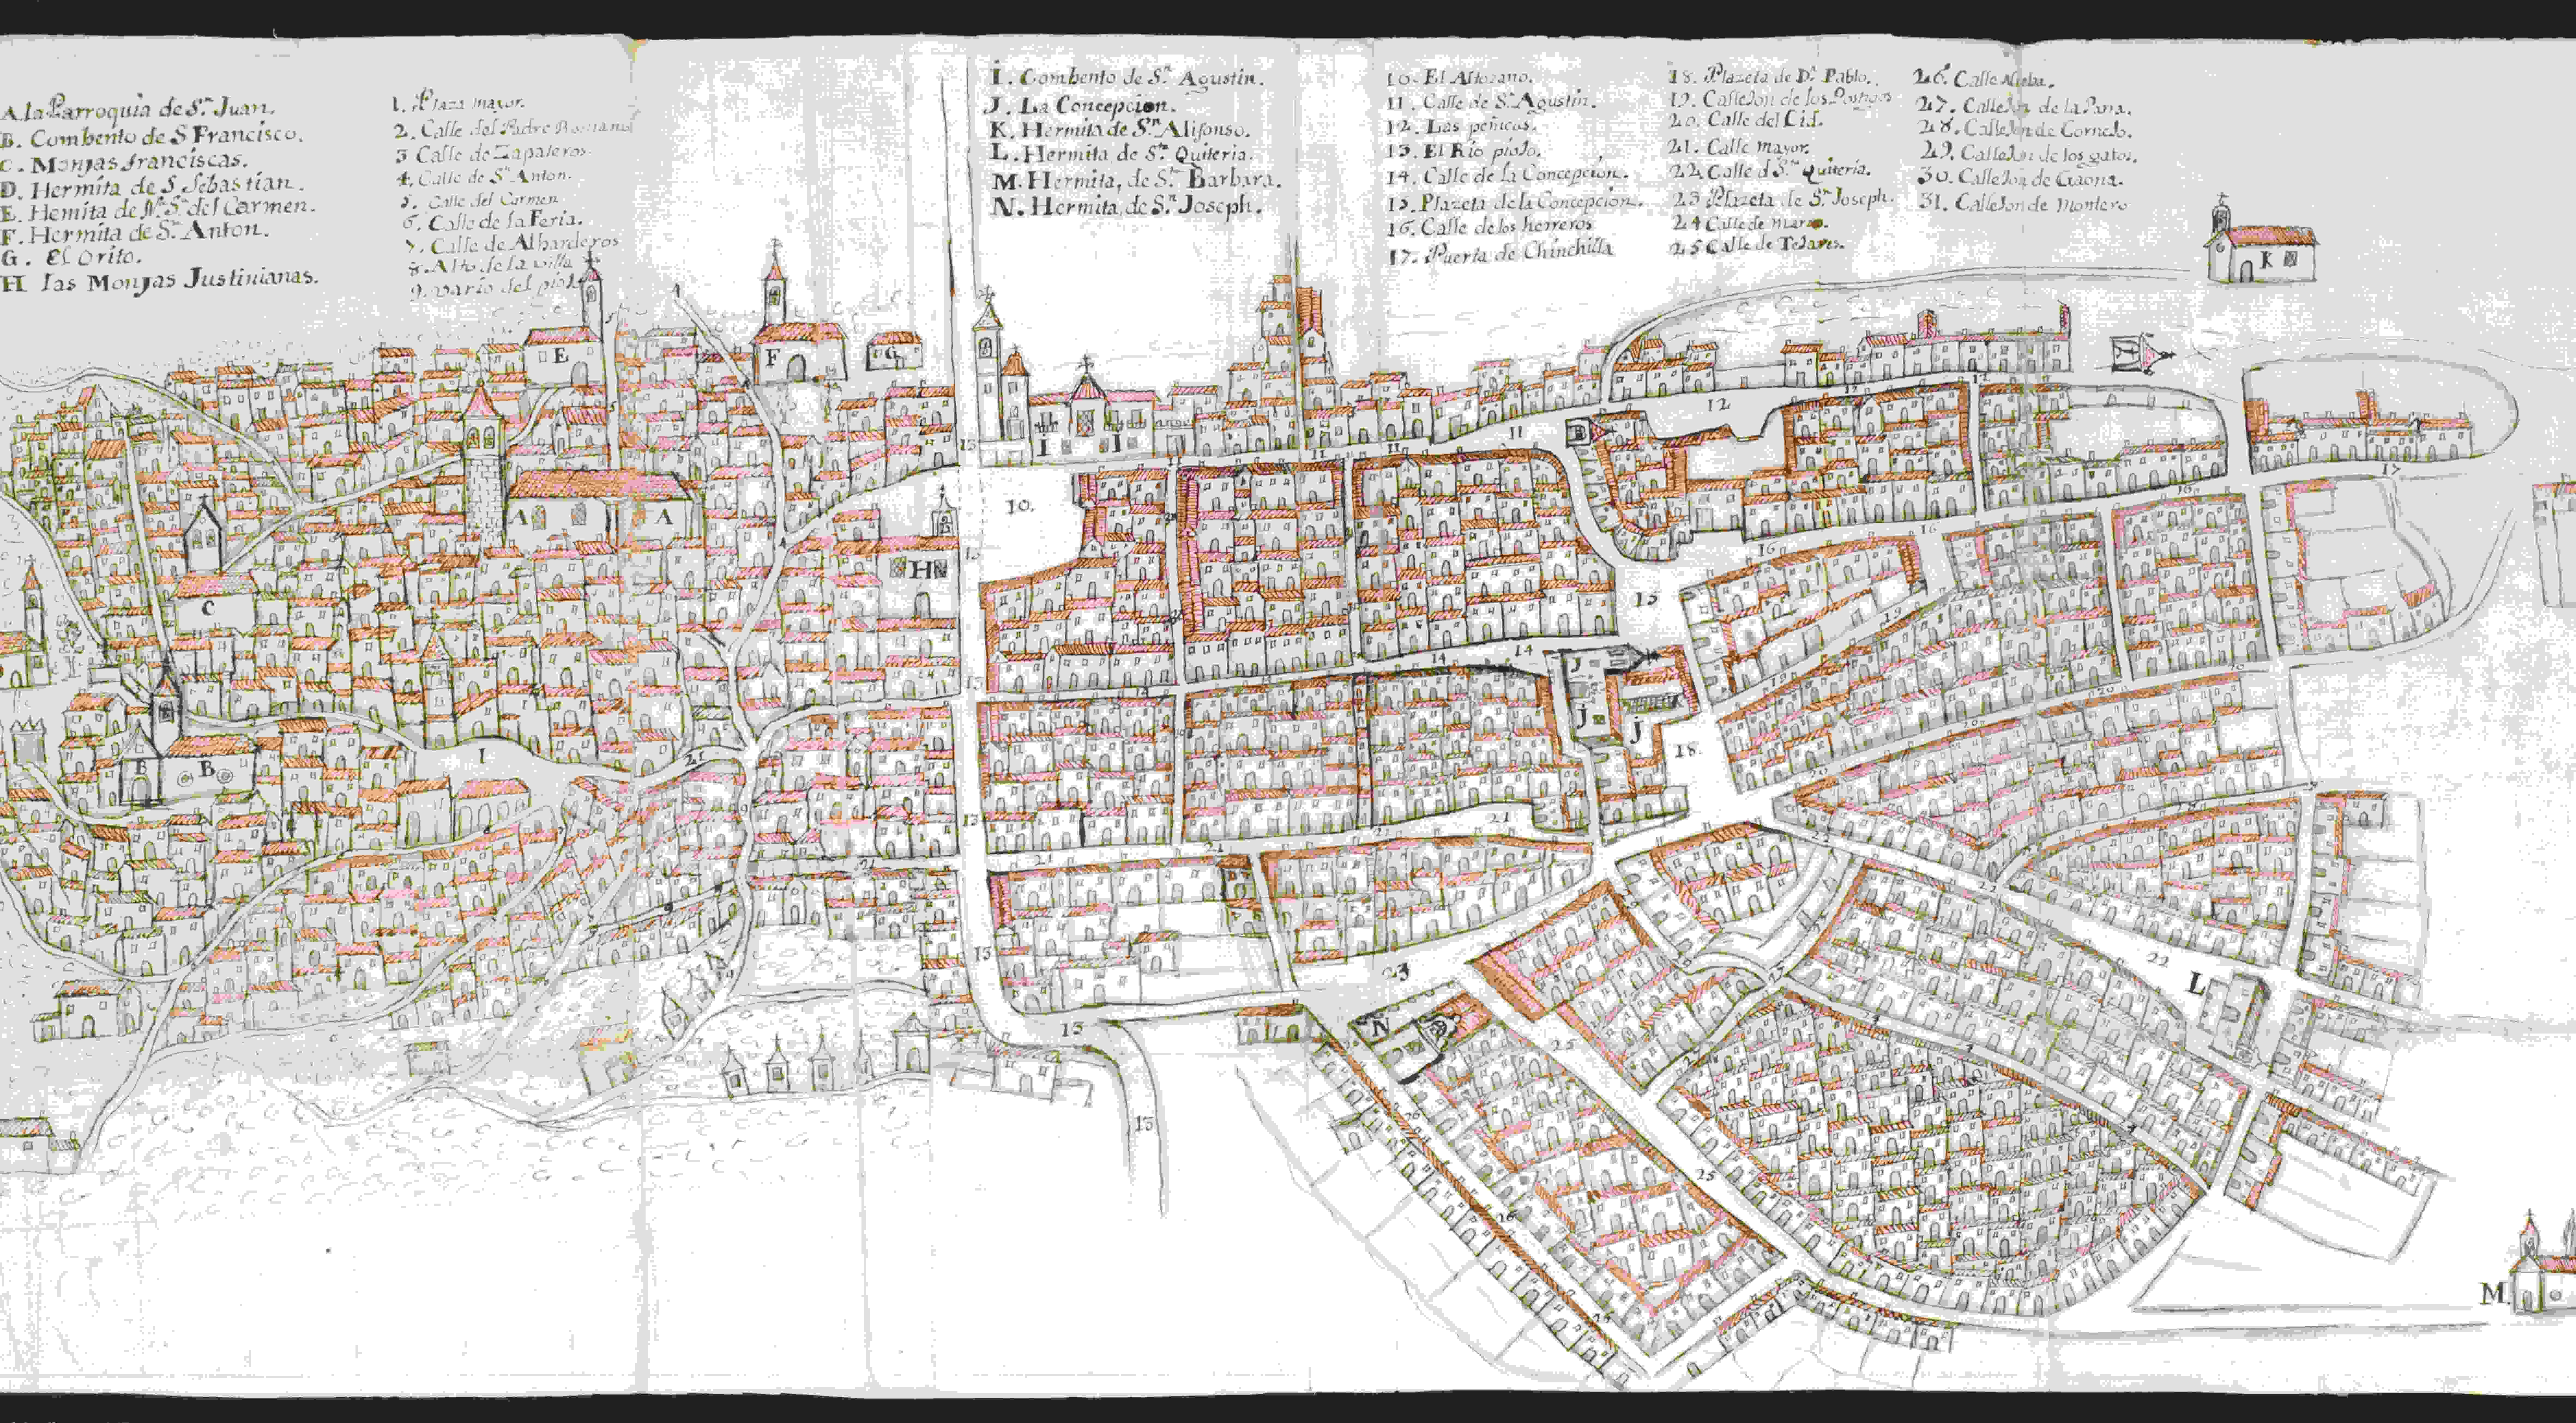 A la Parroquia de Sn. Juan.
B. Combento de S Francisco.
C. Monjas franciscas.
D. Hermita de S Sebastian.
E. Hemita de Na. Sa. del Carmen.
F. Hermita de Sn. Anton.
G. El Orito.
H las Monjas Justinianas.
1. Plaza mayor.
2. Calle del Padre Romano
3 Calle de Zapateros.
4. Calle de Sn Anton.
5. Calle del Carmen.
6. Calle de la Feria.
7. Calle de Albarderos
8. Alto de la villa
9. vario del piojo
I. Combento de Sn. Agustin.
J. La Concepcion.
K. Hermita de Sn. Alifonso.
L. Hermita, de Sta. Quiteria.
M. Hermita, de Sta. Barbara.
N. Hermita, de Sn. Joseph.
10. El Altozano.
11. Calle de Sn. Agustin.
12. Las peñicas.
13. El Rio piojo.
14. Calle de la Concepcion.
15. Plazeta de la Concepcion.
16. Calle de los herreros
17. Puerta de Chinchilla
18. Plazeta de Dn. Pablo.
19. Callejon de los Postigos
20. Calle del Cid.
21. Calle mayor.
22. Calle d Sta. Quiteria.
23 Plazeta de Sn. Joseph.
24 Calle de Marzo.
25 Calle de Tejares.
26. Calle Nueba.
27. Callejon de la Pana.
28. Callejon de Cornejo.
29. Callejon de los gatos.
30. Callejon de Gaona.
31. Callejon de Montero
K
E
F
G
I I
12
12
17
11
11
11
13
10.
A A
16
16
16
13
H
C
15
19
14
14
J
J
J
13
19
20
20
18.
1
21
B B
13
21
21
21
21
22
22
22
L
13
23
N
13
25
24
13
25
26
26
M.